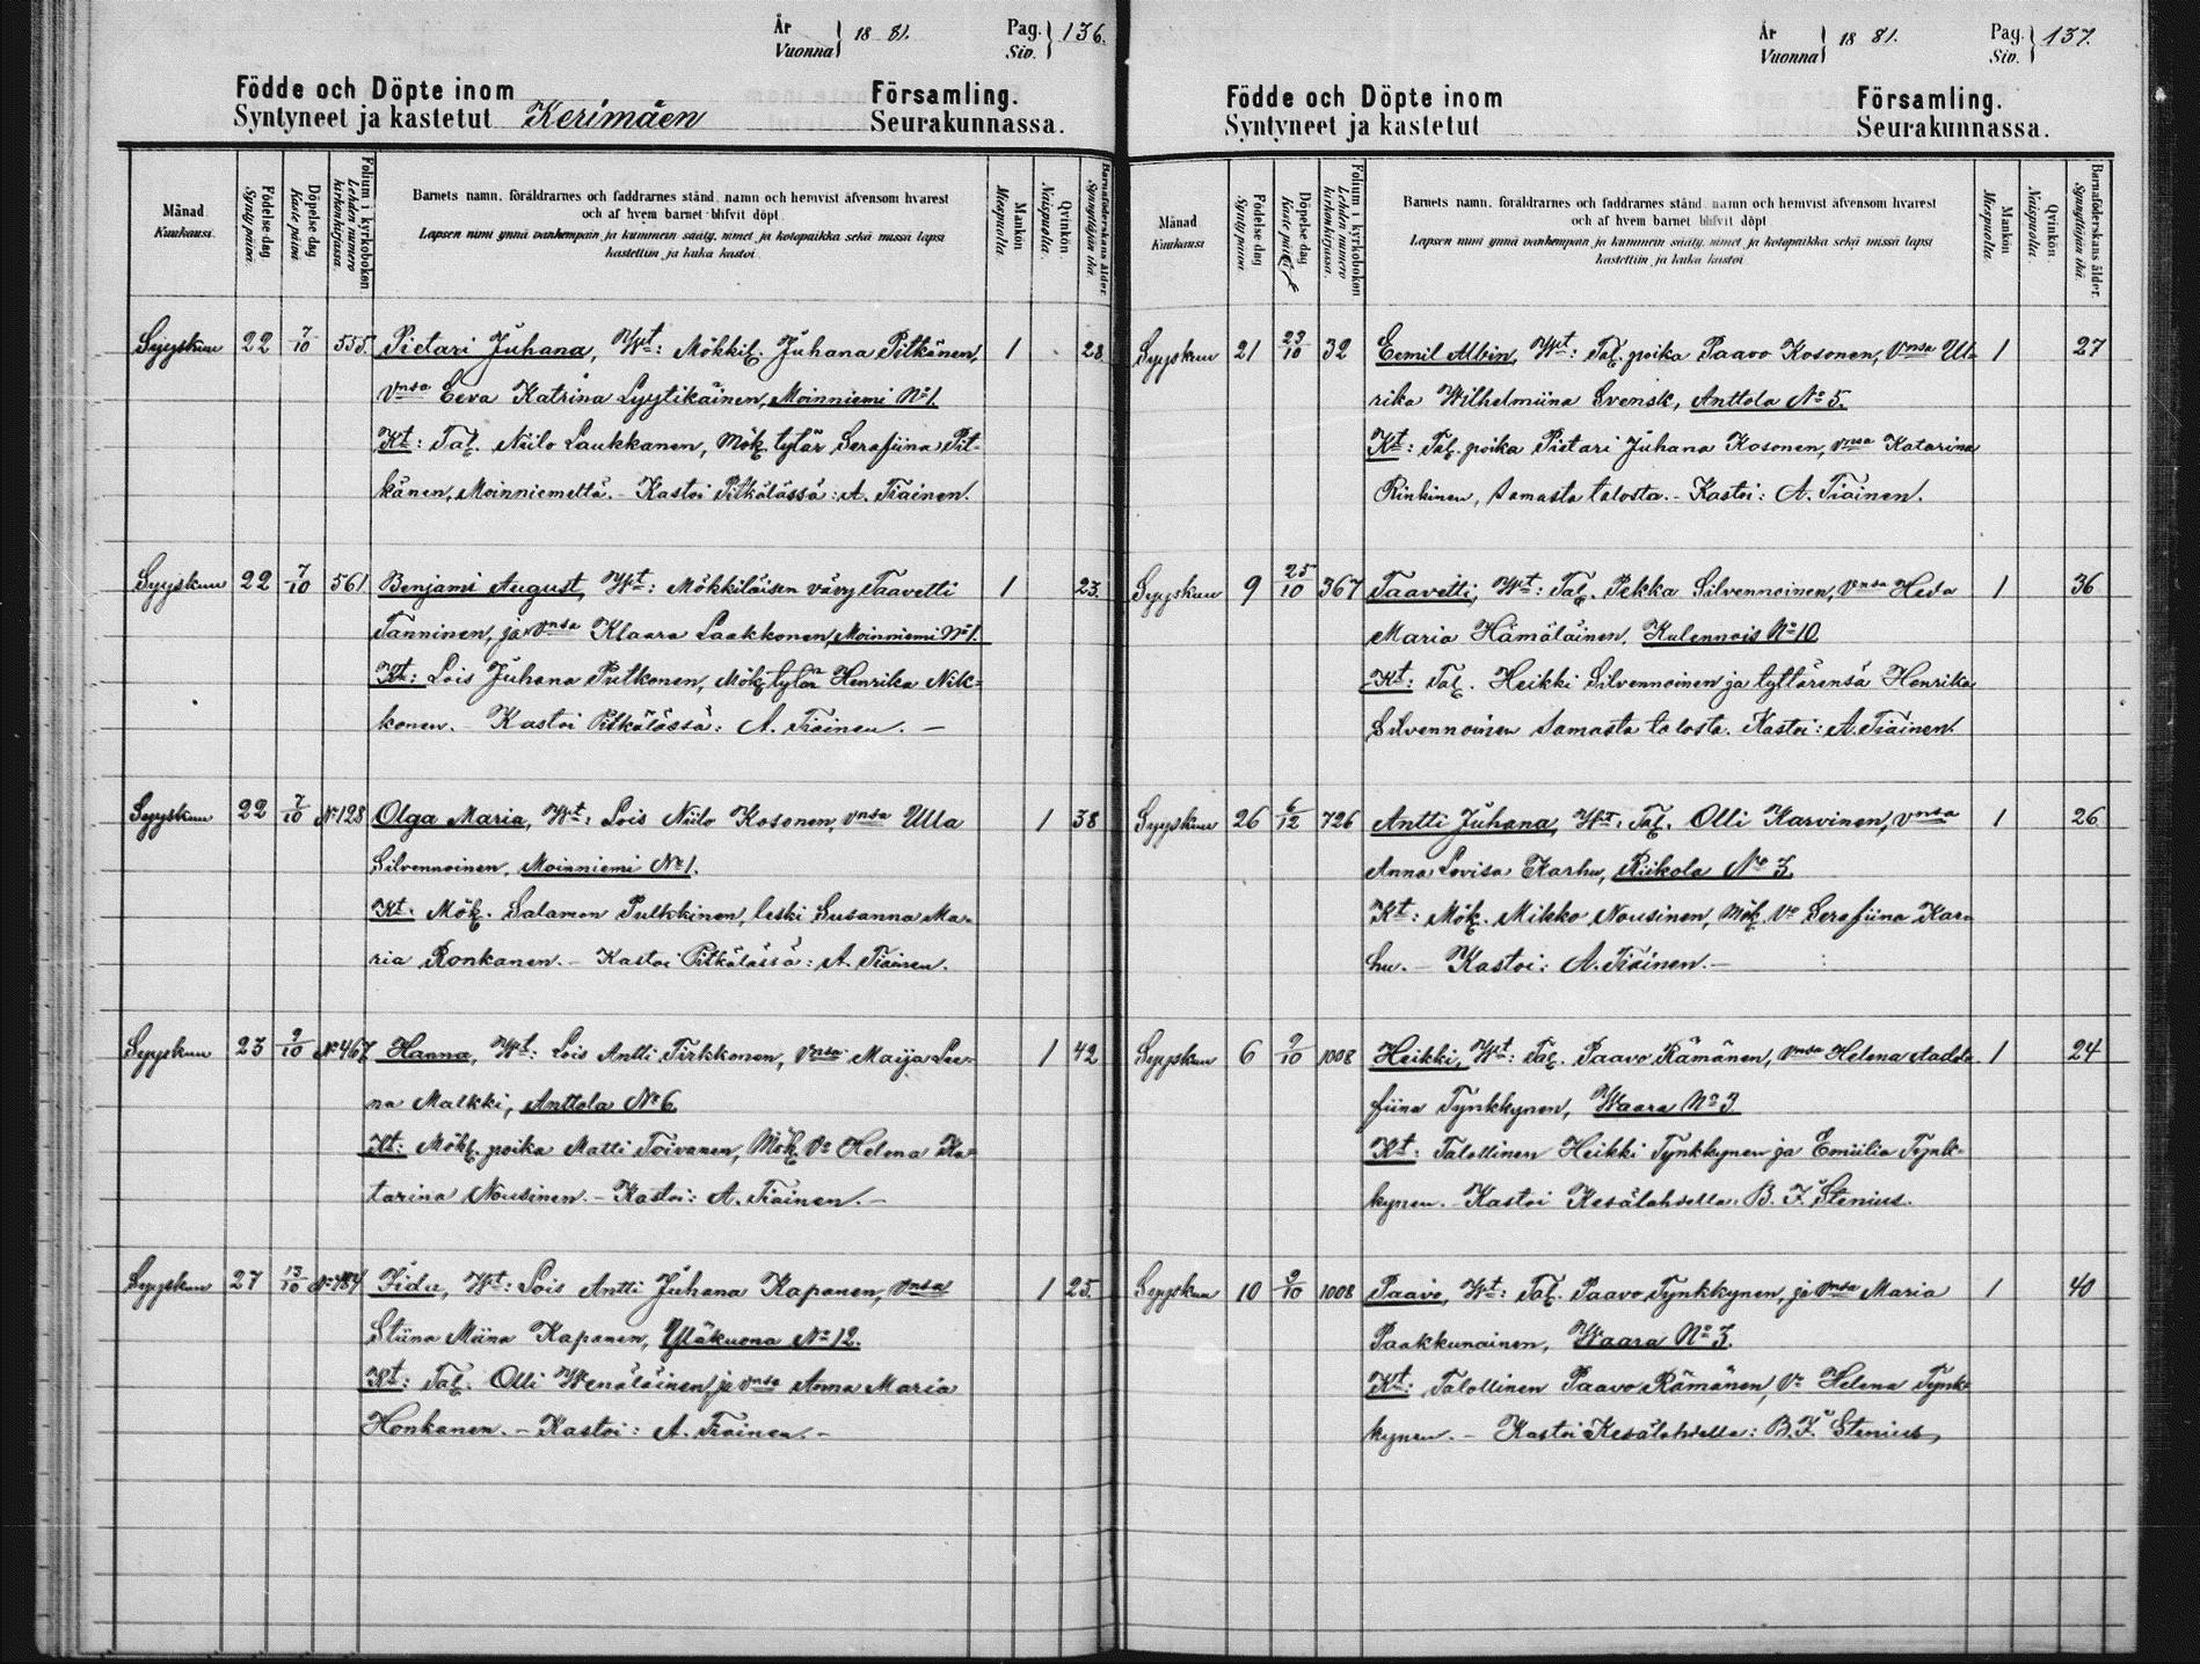 År
Vuonna } 18 81.
Pag.
Siv. } 136.
Födde och Döpte inom
Syntyneet ja kastetut Kerimäen
Församling.
Seurakunnassa.
Månad
Kuukausi
Födelse dag
Synty päivä.
Döpelse dag
Kaste päivä
Folium i kyrkoboken
Lehden numero kirkonkirjassa.
Barnets namn, föräldrarnes och faddrarnes stånd, namn och hemvist äfvensom hvarest
och af hvem barnet blifvit döpt.
Lapsen nimi ynnä vanhempain ja kummein sääty, nimet ja kotopaikka sekä missä lapsi
kastettiin ja kuka kastoi.
Mankön
Miespuolta.
Qvinkön.
Naispuolta.
Barnaföderskans ålder.
Synnyttäjän ikä.
Syyskuu 22 7/10 555. Pietari Juhana, Wt: Mökkil. Juhana Pitkänen, 1 28.
Vnsa Eeva Katrina Lyytikäinen, Moinniemi No 1.
Kt: Tal. Niilo Laukkanen, Mök. tytär Serafiina Pit-
känen, Moinniemeltä. - Kastoi Pitkälässä: A. Tiainen.
Syyskuu 22 7/10 561 Benjami August, Wt: Mökkiläisen vävy Taavetti 1 23.
Tanninen, ja Vnsa Klaara Laakkonen, Moinniemi No 1.
Kt: Lois Juhana Putkonen, Mök. tytär Henrika Nik-
konen. - Kastoi Pitkälässä: A. Tiainen. -
Syyskuu 22 7/10 No 128 Olga Maria, Wt: Lois Niilo Kosonen, Vnsa Ulla 1 38
Silvennoinen, Moinniemi No 1.
Kt. Mök. Salamon Pulkkinen, leski Susanna Ma-
ria Ronkanen. - Kastoi Pitkälässä: A. Tiainen.
Syyskuu 23 9/10 No 467 Hanna, Wt: Lois Antti Tirkkonen, Vnsa Maija Lee-
na Malkki, Anttola No 6. 1 42
Kt: Mökl. poika Matti Toivanen, Mök. Vo Helena Ka-
tarina Nousinen. - Kastoi: A. Tiainen. -
Syyskuu 27 13/10 No 484 Fidu, Wt: Lois Antti Juhana Kaponen, Vnsa 1 25.
Stiina Miina Kaponen, Yläkuona No 12.
Kt: Tal. Olli Wenäläinen ja vnsa Anna Maria
Honkanen. - Kastoi: A. Tiainen. -
År
Vuonna } 18 81.
Pag.
Siv. } 137.
Födde och Döpte inom
Syntyneet ja kastetut
Församling.
Seurakunnassa.
Månad
Kuukausi
Födelse dag
Synty päivä.
Döpelse dag
Kaste päivä
Folium i kyrkoboken
Lehden numero kirkonkirjassa.
Barnets namn, föräldrarnes och faddrarnes stånd, namn och hemvist äfvensom hvarest
och af hvem barnet blifvit döpt
Lapsen nimi ynnä vanhempain ja kummein sääty, nimet ja kotopaikka sekä missä lapsi
kastettiin ja kuka kastoi
Mankön
Miespuolta
Qvinkön
Naispuolta
Barnaföderskans ålder.
Synnyttäjän ikä.
Syyskuu 21 23/10 32 Eemil Albin, Wt: Tal. poika Paavo Kosonen, Vnsa Ul- 1 27
rika Wilhelmiina Svensk, Anttola No 5.
Kt: Tal. poika Pietari Juhana Kosonen, vnsa Katarina
Rinkinen, samasta talosta. - Kastoi: A. Tiainen.
Syyskuu 9 25/10 367 Taavetti, Wt: Tal. Pekka Silvennoinen, Vnsa Heda 1 36
Maria Hämäläinen, Kulennois No 10
Kt: Tal. Heikki Silvennoinen ja tyttärensä Henrika
Silvennoinen samasta talosta. Kastoi: A. Tiainen.
Syyskuu 26 6/12 726 Antti Juhana, Wt. Tal. Olli Karvinen, vnsa 1 26
Anna Lovisa Karhu, Riikola No 3.
Kt: Mök. Mikko Nousinen, Mök. Vo Serafiina Kar-
hu. - Kastoi: A. Tiainen. -
Syyskuu 6 9/10 1008 Heikki, Wt: Tal. Paavo Rämänen, vnsa Helena Aadol- 1 24
fiina Tynkkynen, Waara No 3
Kt: Talollinen Heikki Tynkkynen ja Emiilia Tynk-
kynen. - Kastoi Kesälahdella: B. F. Stenius.
Syyskuu 10 9/10 1008 Paavo, Wt: Tal. Paavo Tynkkynen, ja vnsa Maria 1 40
Paakkunainen, Waara No 3.
Kt: Talollinen Paavo Rämänen, Vo Helena Tynk-
kynen. - Kastoi Kesälahdella: B. F. Stenius,